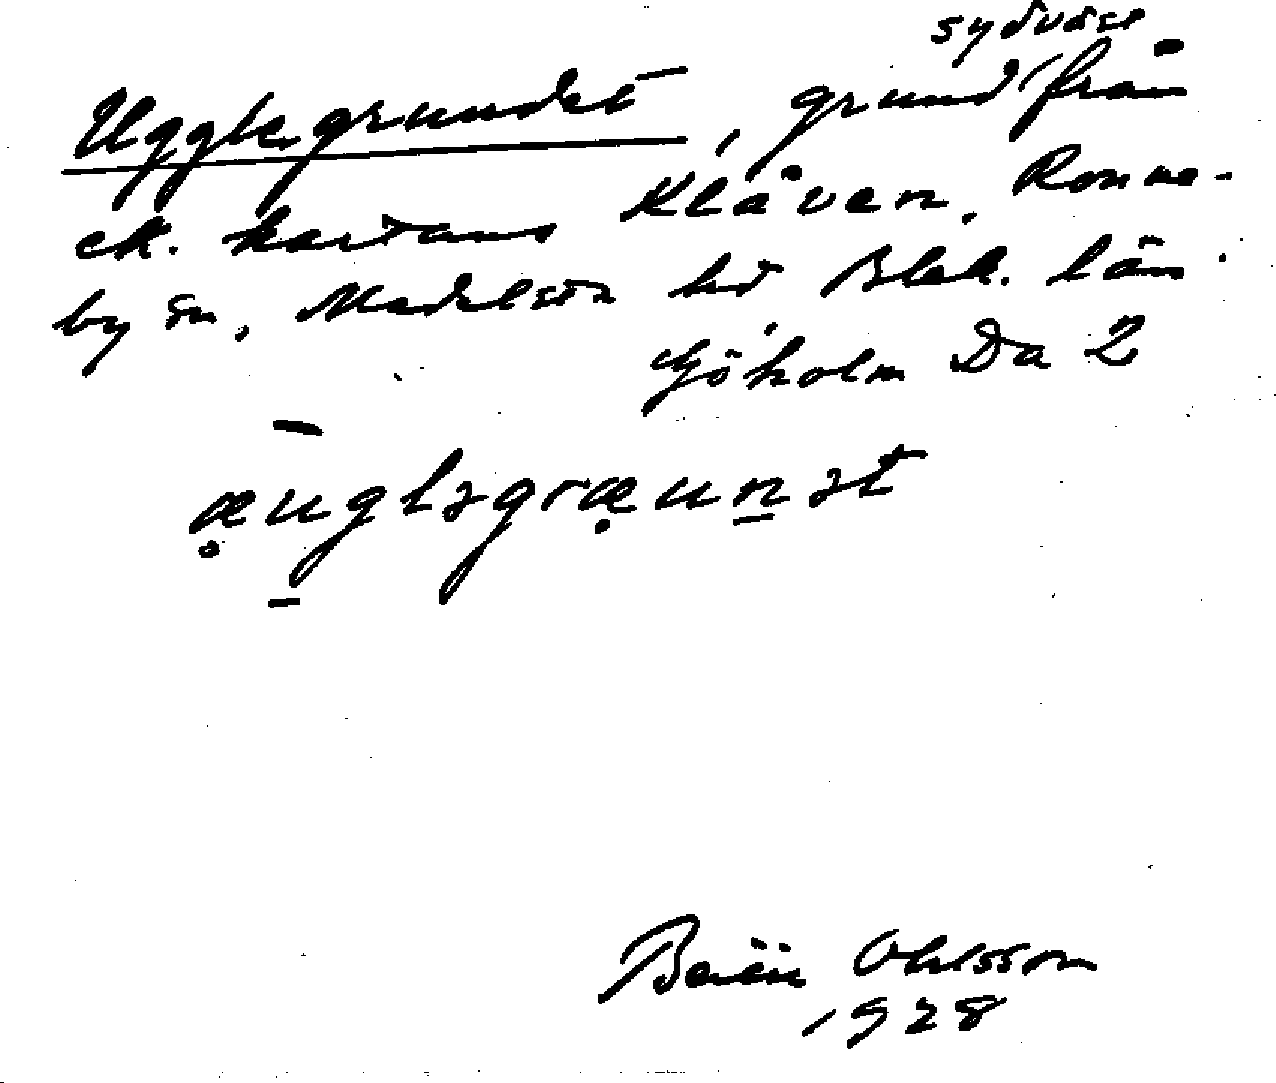 sydväst
Ugglegrundet, grund från
ek. kartans Klåven, Ronne-
by sn, Medelstn hd Blek. län
Göholm Da 2
æuglǝgræunǝt
Ohlsson
1928